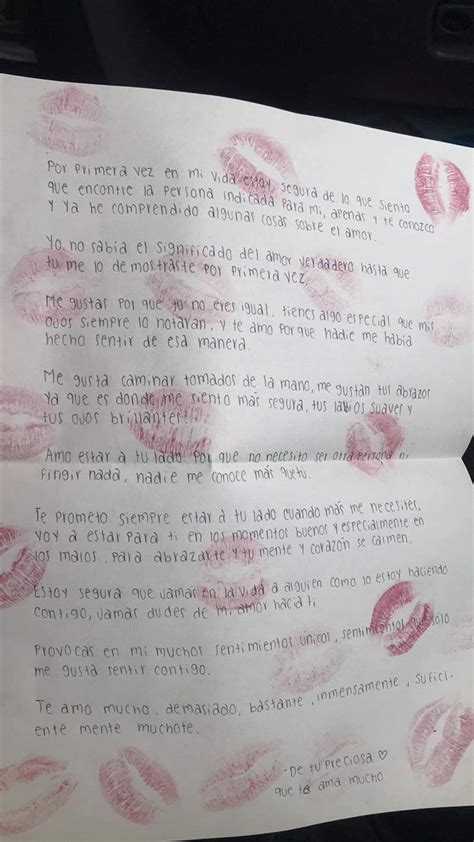 Por primera vez en mi vida estoy segura de lo que siento
que encontre la persona indicada para mi, apenas y te conozco
y ya he comprendido algunas cosas sobre el amor.
Yo no sabia el significado del amor verdadero hasta que
tu me lo demostraste por primera vez
Me gustas por que tu no eres igual, tienes algo especial que mis
ojos siempre lo notaran, y te amo porque nadie me habia
hecho sentir de esa manera.
Me gusta caminar tomados de la mano, me gustan tus abrazos
ya que es donde me siento más segura, tus labios suaves y
tus ojos brillantes...
Amo estar a tu lado por que no necesito ser otra persona ni
fingir nada, nadie me conoce más que tu.
Te prometo siempre estar a tu lado cuando más me necesites,
voy a estar para ti en los momentos buenos y especialmente en
los malos, para abrazarte y tu mente y corazón se calmen.
Estoy segura que jamas en la vida a alguien como lo estoy haciendo
contigo, jamas dudes de mi amor hacia ti
Provocas en mi muchos sentimientos unicos, sentimientos que sólo
me gusta sentir contigo.
Te amo mucho, demasiado, bastante, inmensamente, sufici-
ente mente muchote.
-De tu preciosa ♡
que te ama mucho